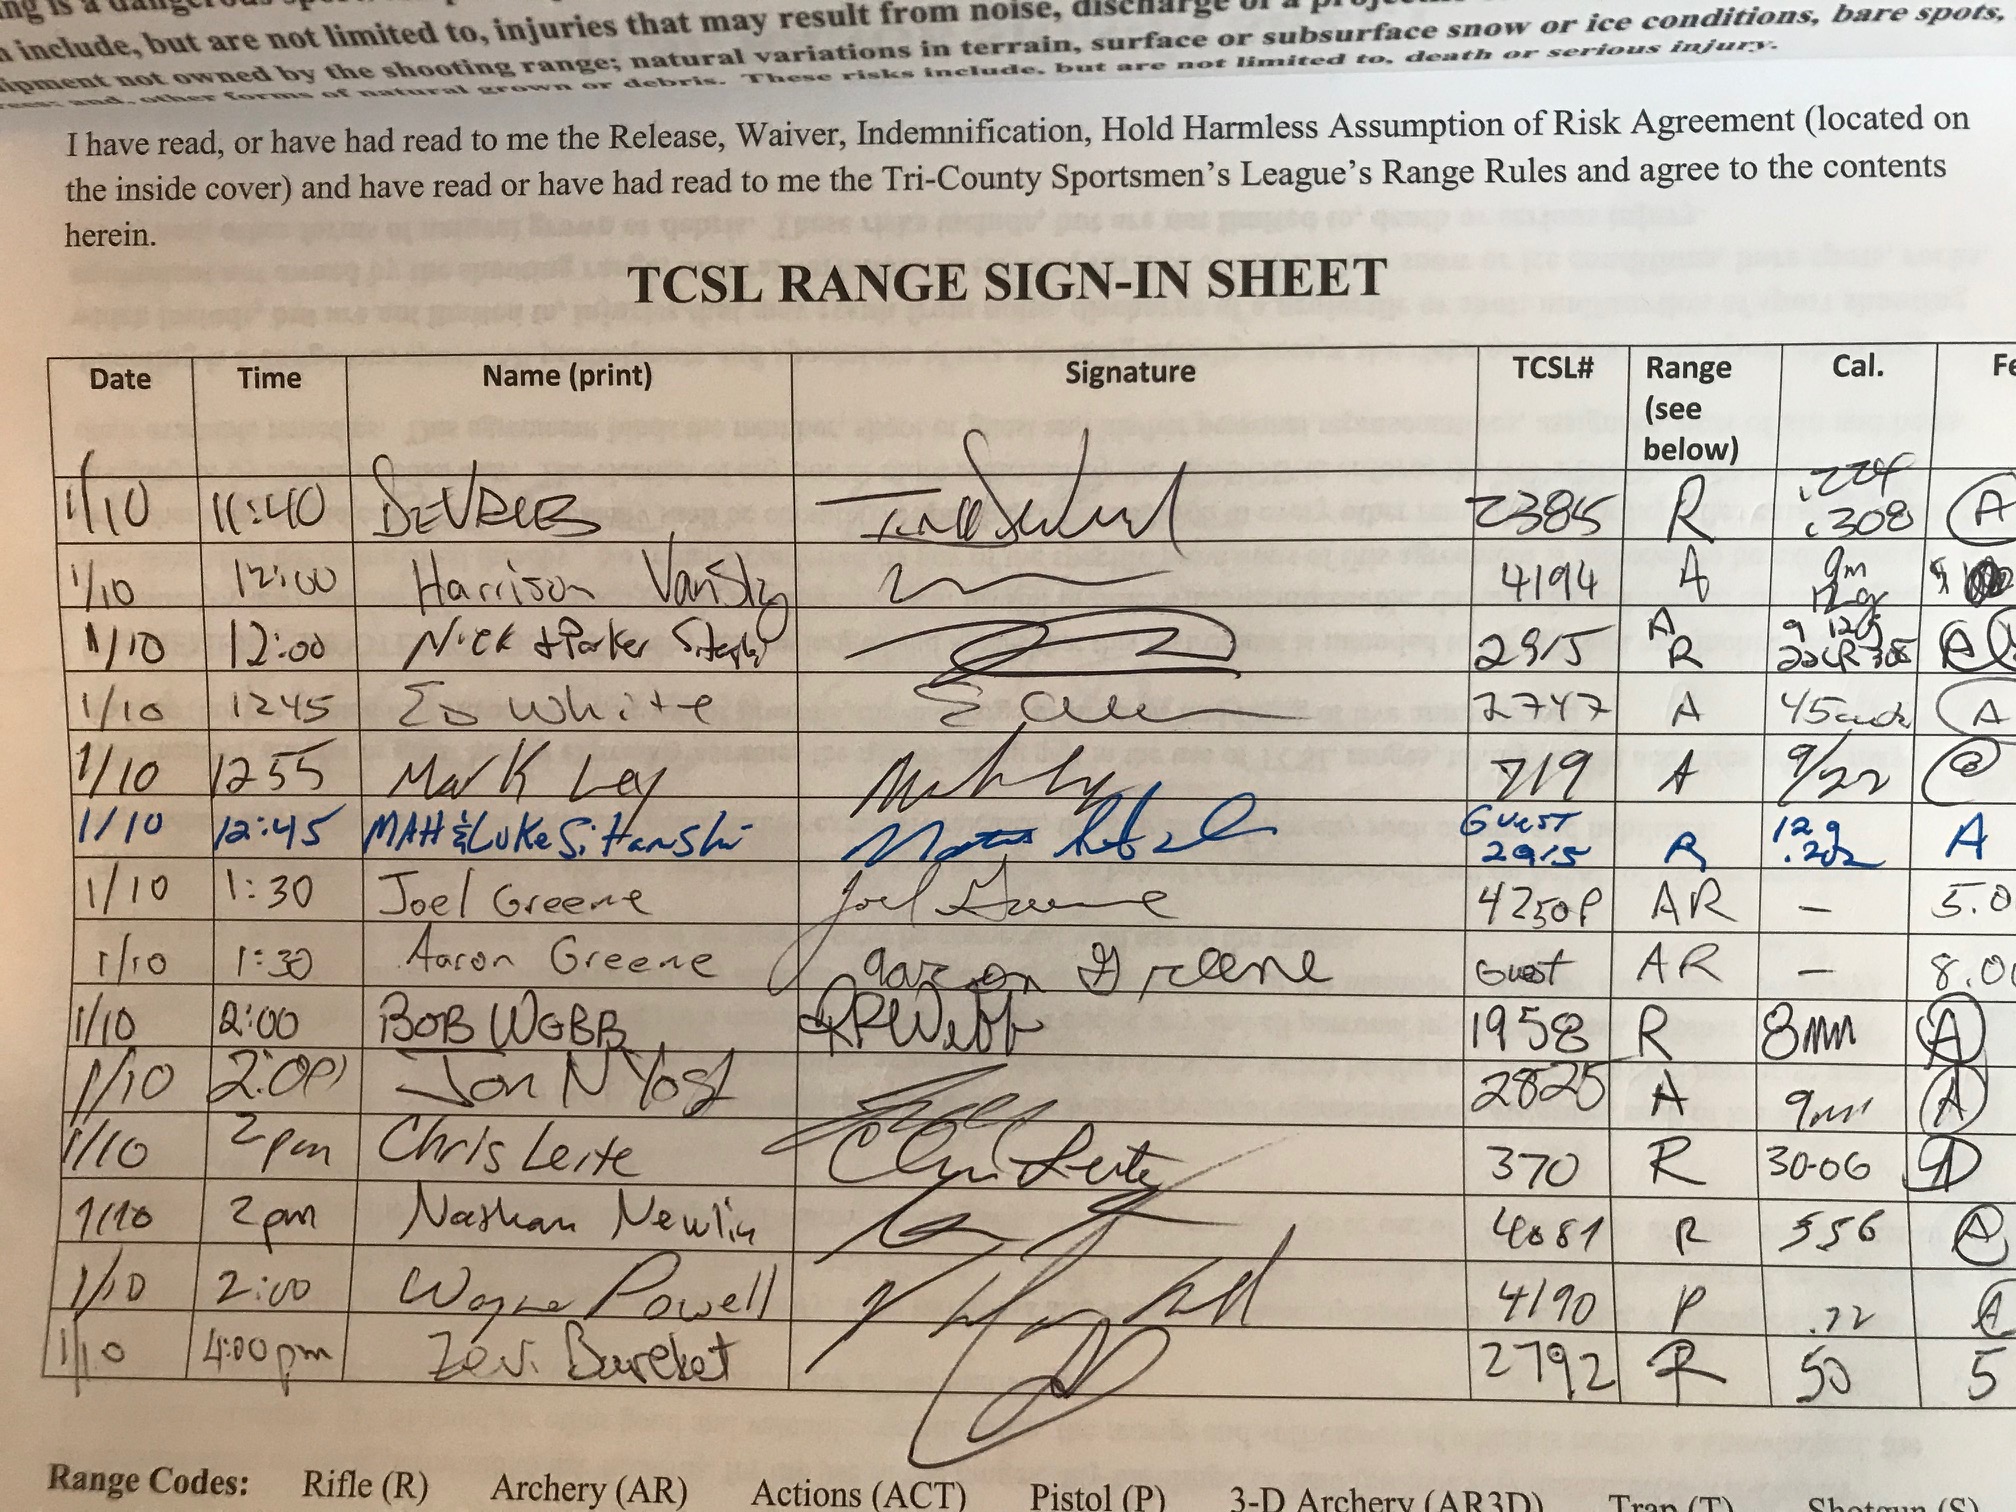 ing is a dangerous
n include, but are not limited to, injuries that may result from noise, discharge of a
ipment not owned by the shooting range; natural variations in terrain, surface or subsurface snow or ice conditions, bare spots,
rees; and, other forms of natural grown or debris. These risks include, but are not limited to, death or serious injury.
I have read, or have had read to me the Release, Waiver, Indemnification, Hold Harmless Assumption of Risk Agreement (located on
the inside cover) and have read or have had read to me the Tri-County Sportsmen's League's Range Rules and agree to the contents
herein.
TCSL RANGE SIGN-IN SHEET
Date Time Name (print) Signature TCSL# Range (see below) Cal. Fe
1/10 11:40 DEVRIES 2385 R .224 .308 A
1/10 12:00 Harrison VanSly 4194 A 9m 12g
1/10 12:00 Nick & Parker 2915 A R 9 12g A
1/10 1245 ED White 2747 A 45 A
1/10 1255 Mark Ley 719 A 9/22
1/10 12:45 MAH & Luke Sitanski Guest 2915 R 12g .202 A
1/10 1:30 Joel Greene Joel Greene 4250P AR – 5.0
1/10 1:30 Aaron Greene aaron Greene Guest AR – 8.00
1/10 2:00 BOB WEBB RPWebb 1958 R 8mm A
1/10 2:00 Jon N Yost 2825 A 9mm A
1/10 2pm Chris Leite Chris Leite 370 R 30-06 A
1/10 2pm Nathan Newlin 4081 R 556 A
1/10 2:00 Wayne Powell 4190 P .22 A
1/10 4:00pm Zevi Bareket 2792 R 50 5
Range Codes: Rifle (R) Archery (AR) Actions (ACT) Pistol (P) 3-D Archery (AR3D) Trap (T) Shotgun (S)